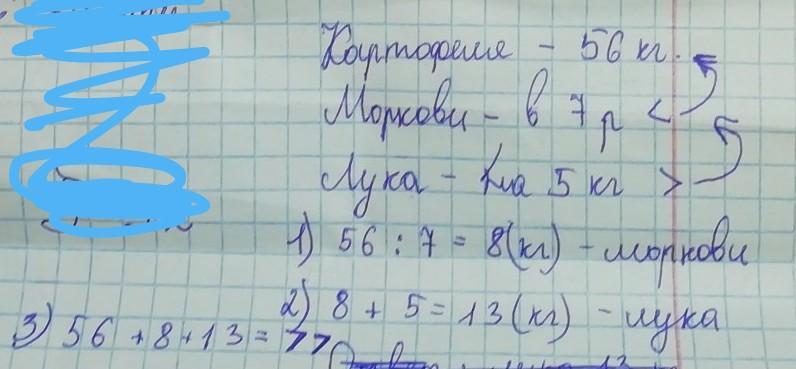 Картофеля - 56 кг.
Моркови - в 7 р <
Лука - на 5 кг >
1) 56 : 7 = 8 (кг) - моркови
2) 8 + 5 = 13 (кг) - лука
3) 56 + 8 + 13 = 77